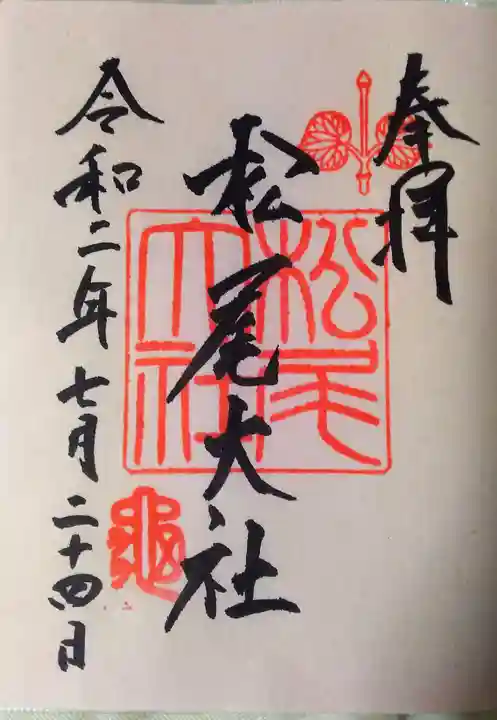 奉拝
松尾大社
松尾大社
龜
令和二年七月二十四日